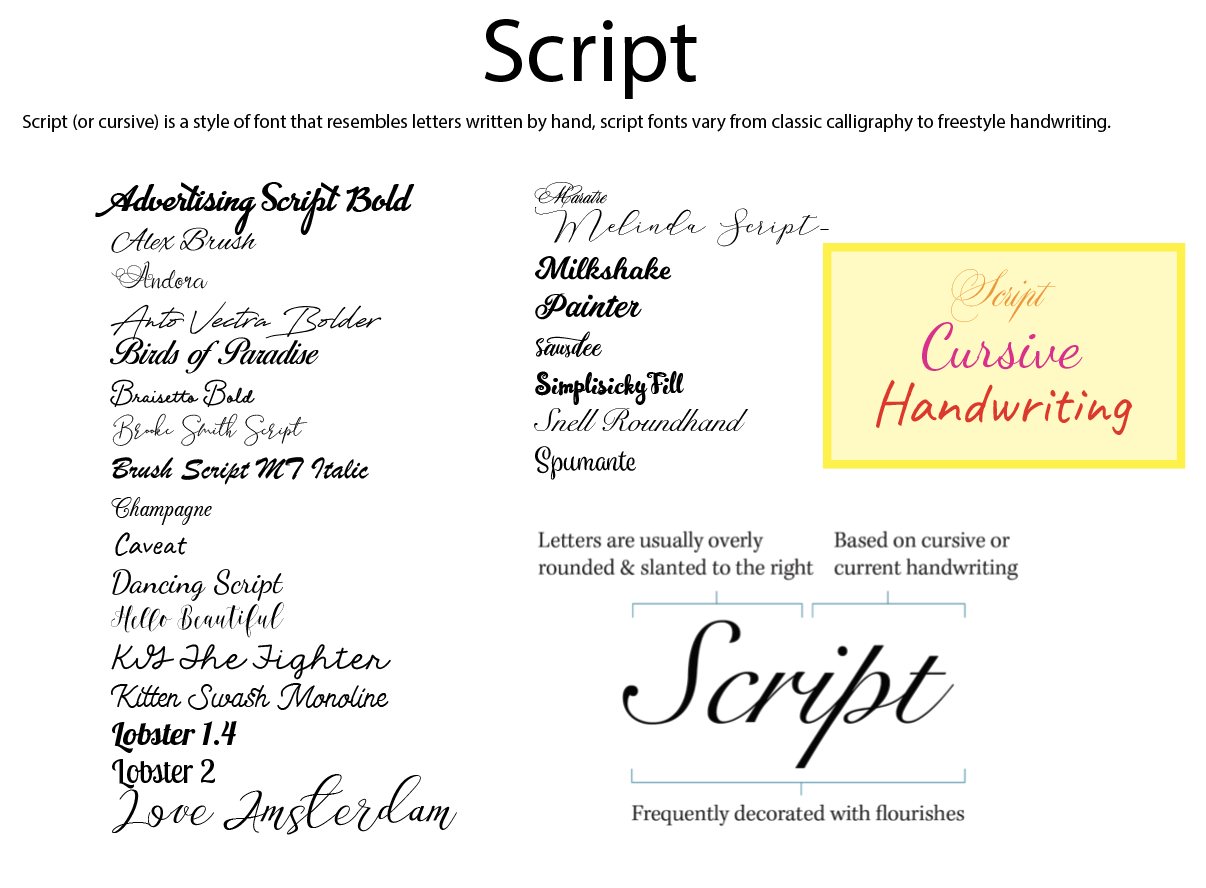 Script
Script (or cursive) is a style of font that resembles letters written by hand, script fonts vary from classic calligraphy to freestyle handwriting.
Advertising Script Bold
Alex Brush
Andora
Anto Vectra Bolder
Birds of Paradise
Braisetto Bold
Brooke Smith Script
Brush Script MT Italic
Champagne
Caveat
Dancing Script
Hello Beautiful
KG The Fighter
Kitten Swash Monoline
Lobster 1.4
Lobster 2
Love Amsterdam
Maratre
Melinda Script-
Milkshake
Painter
Sauxdee
SimplisickyFill
Snell Roundhand
Spumante
Script
Cursive
Handwriting
Letters are usually overly
rounded & slanted to the right
Based on cursive or
current handwriting
Script
Frequently decorated with flourishes